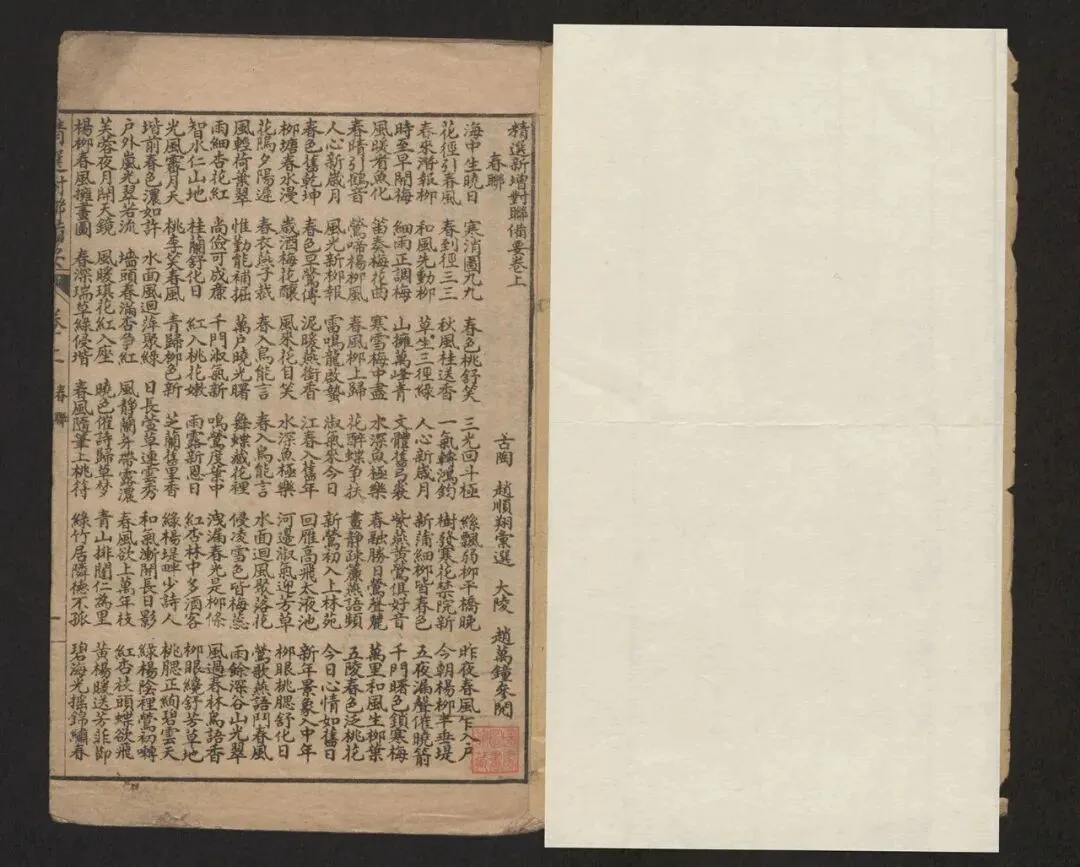 精選新增對聯備要卷上
春聯 古陶 趙順翔彙選 大陵 趙萬鐘參閱
海中生曉日 寒消圖九九 春色桃舒笑 三光回斗極 絲飄弱柳平橋晚 昨夜春風乍入戶
花徑引春風 春到徑三三 秋風桂送香 一氣轉鴻鈞 樹發寒花禁院新 今朝楊柳半垂堤
春來將報柳 和風先動柳 草生三徑綠 人心新歲月 新蒲細柳皆春色 五夜漏聲催曉箭
時至早開梅 細雨正調梅 山擁萬峰青 文體舊弓裘 紫燕黃鶯俱好音 千門曙色鎖寒梅
風暖看魚化 笛奏梅花曲 寒雪梅中盡 水深魚極樂 春融勝日鶯聲麗 萬里和風生柳葉
春晴引鶴音 鶯啼楊柳風 春風柳上歸 花醉蝶爭扶 晝靜陳簾燕語頻 五陵春色泛桃花
人心新歲月 風光新柳報 雷鳴龍啟蟄 淑氣來今日 新鶯初入上林苑 今日心情如舊日
春色舊乾坤 春色早鶯傳 泥暖燕銜香 江春入舊年 回雁高飛太液池 新年景象入中年
柳塘春水漫 歲酒梅花釀 風來花自笑 水深魚極樂 河邊淑氣迎芳草 柳眼桃腮舒化日
花隖夕陽遲 春衣燕子裁 春入鳥能言 春入鳥能言 水面迴風聚落花 鶯歌燕語鬥春風
風輕荷葉翠 惟勤能補掘 萬戶曉光曙 舞蝶藏花裡 侵凌雪色皆梅蕊 雨餘深谷山光翠
雨細杏花紅 尚儉可成廉 千門淑氣新 鳴鶯度葉中 洩漏春光是柳條 風過春林鳥語香
智水仁山地 桂蘭舒化日 紅入桃花嫩 雨露新恩日 紅杏林中多酒客 柳眼纔舒芳草地
光風霽月天 桃李笑春風 青歸柳色新 芝蘭舊里香 綠楊堤畔少詩人 桃腮正絢碧雲天
堦前春色濃如許 水面風迴萍聚綠 日長萱草連雲秀 和氣漸開長日影 綠楊陰裡鶯初囀
戶外嵐光翠若流 墻頭春滿杏爭紅 風靜蘭芽帶露濃 春風欲上萬年枝 紅杏枝頭蝶欲飛
芙蓉夜月開天鏡 風暖琪花紅入座 曉色催詩歸草夢 青山排闥仁為里 黃楊暖送芳菲節
楊柳春風擁畫圖 春深瑞草綠侵堦 春風隨筆上桃符 綠竹居隣德不孤 碧海光搖錦繡春
春聯 一